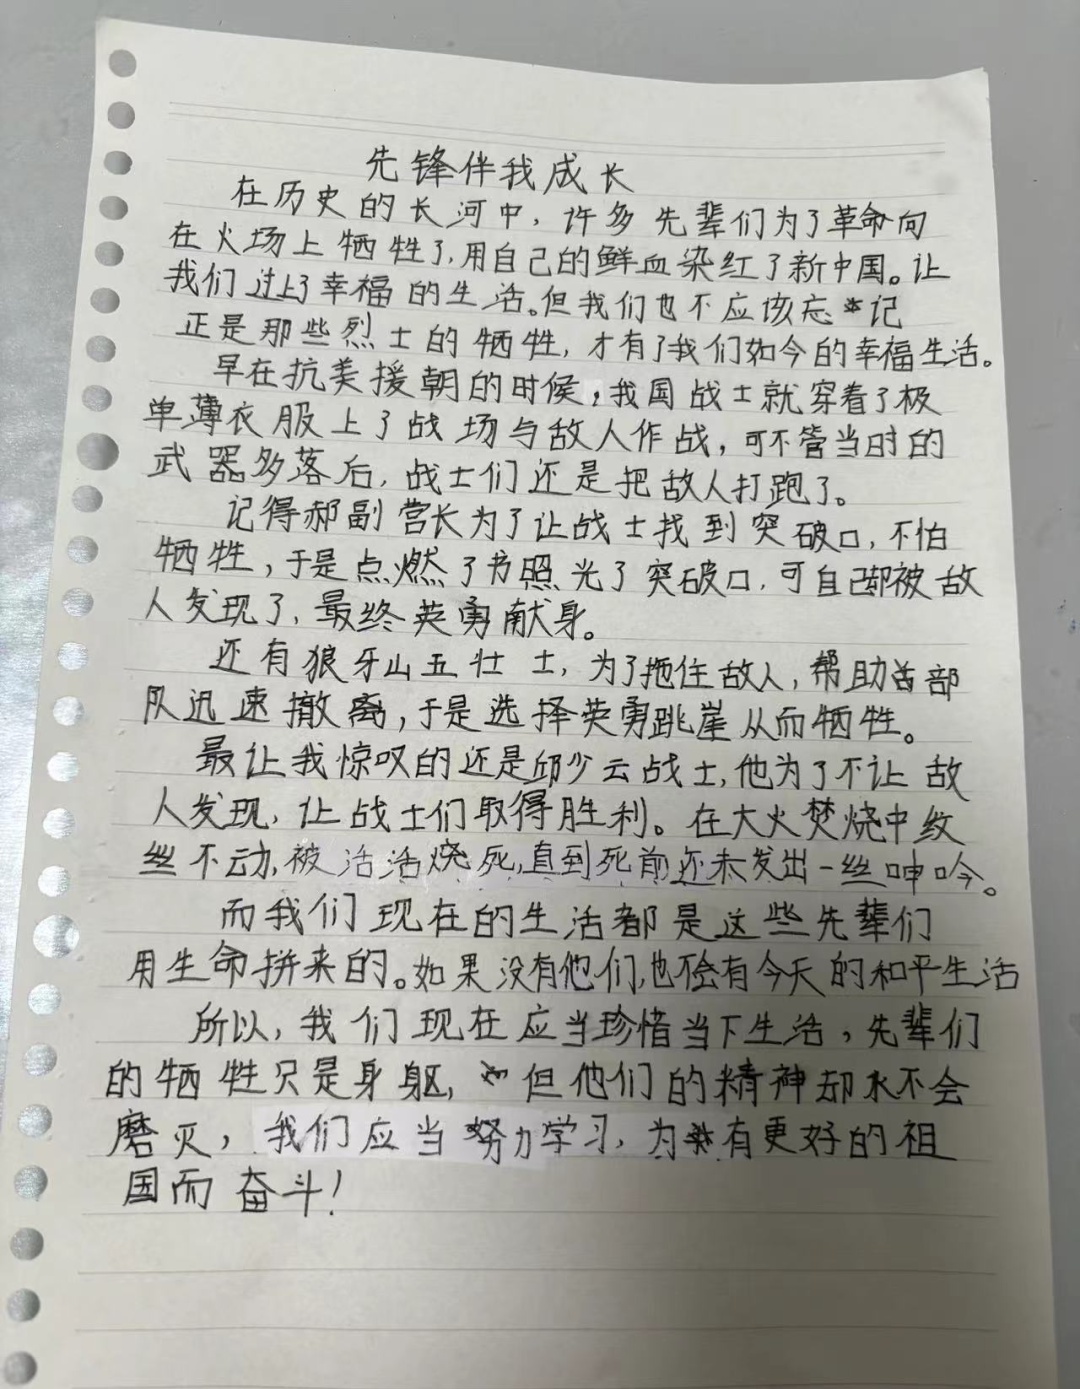 先锋伴我成长
在历史的长河中，许多先辈们为了革命向
在火场上牺牲了，用自己的鲜血染红了新中国。让
我们过上了幸福的生活。但我们也不应该忘记
正是那些烈士的牺牲，才有了我们如今的幸福生活。
早在抗美援朝的时候，我国战士就穿着了极
单薄衣服上了战场与敌人作战，可不管当时的
武器多落后，战士们还是把敌人打跑了。
记得郝副营长为了让战士找到突破口，不怕
牺牲，于是点燃了书照光了突破口，可自己却被敌
人发现了，最终英勇献身。
还有狼牙山五壮士，为了拖住敌人，帮助部
队迅速撤离，于是选择英勇跳崖从而牺牲。
最让我惊叹的还是邱少云战士，他为了不让敌
人发现，让战士们取得胜利。在大火焚烧中纹
丝不动，被活活烧死，直到死前还未发出一丝呻吟。
而我们现在的生活都是这些先辈们
用生命拼来的。如果没有他们，也不会有今天的和平生活
所以，我们现在应当珍惜当下生活，先辈们
的牺牲只是身躯，但他们的精神却永不会
磨灭，我们应当努力学习，为有更好的祖
国而奋斗！